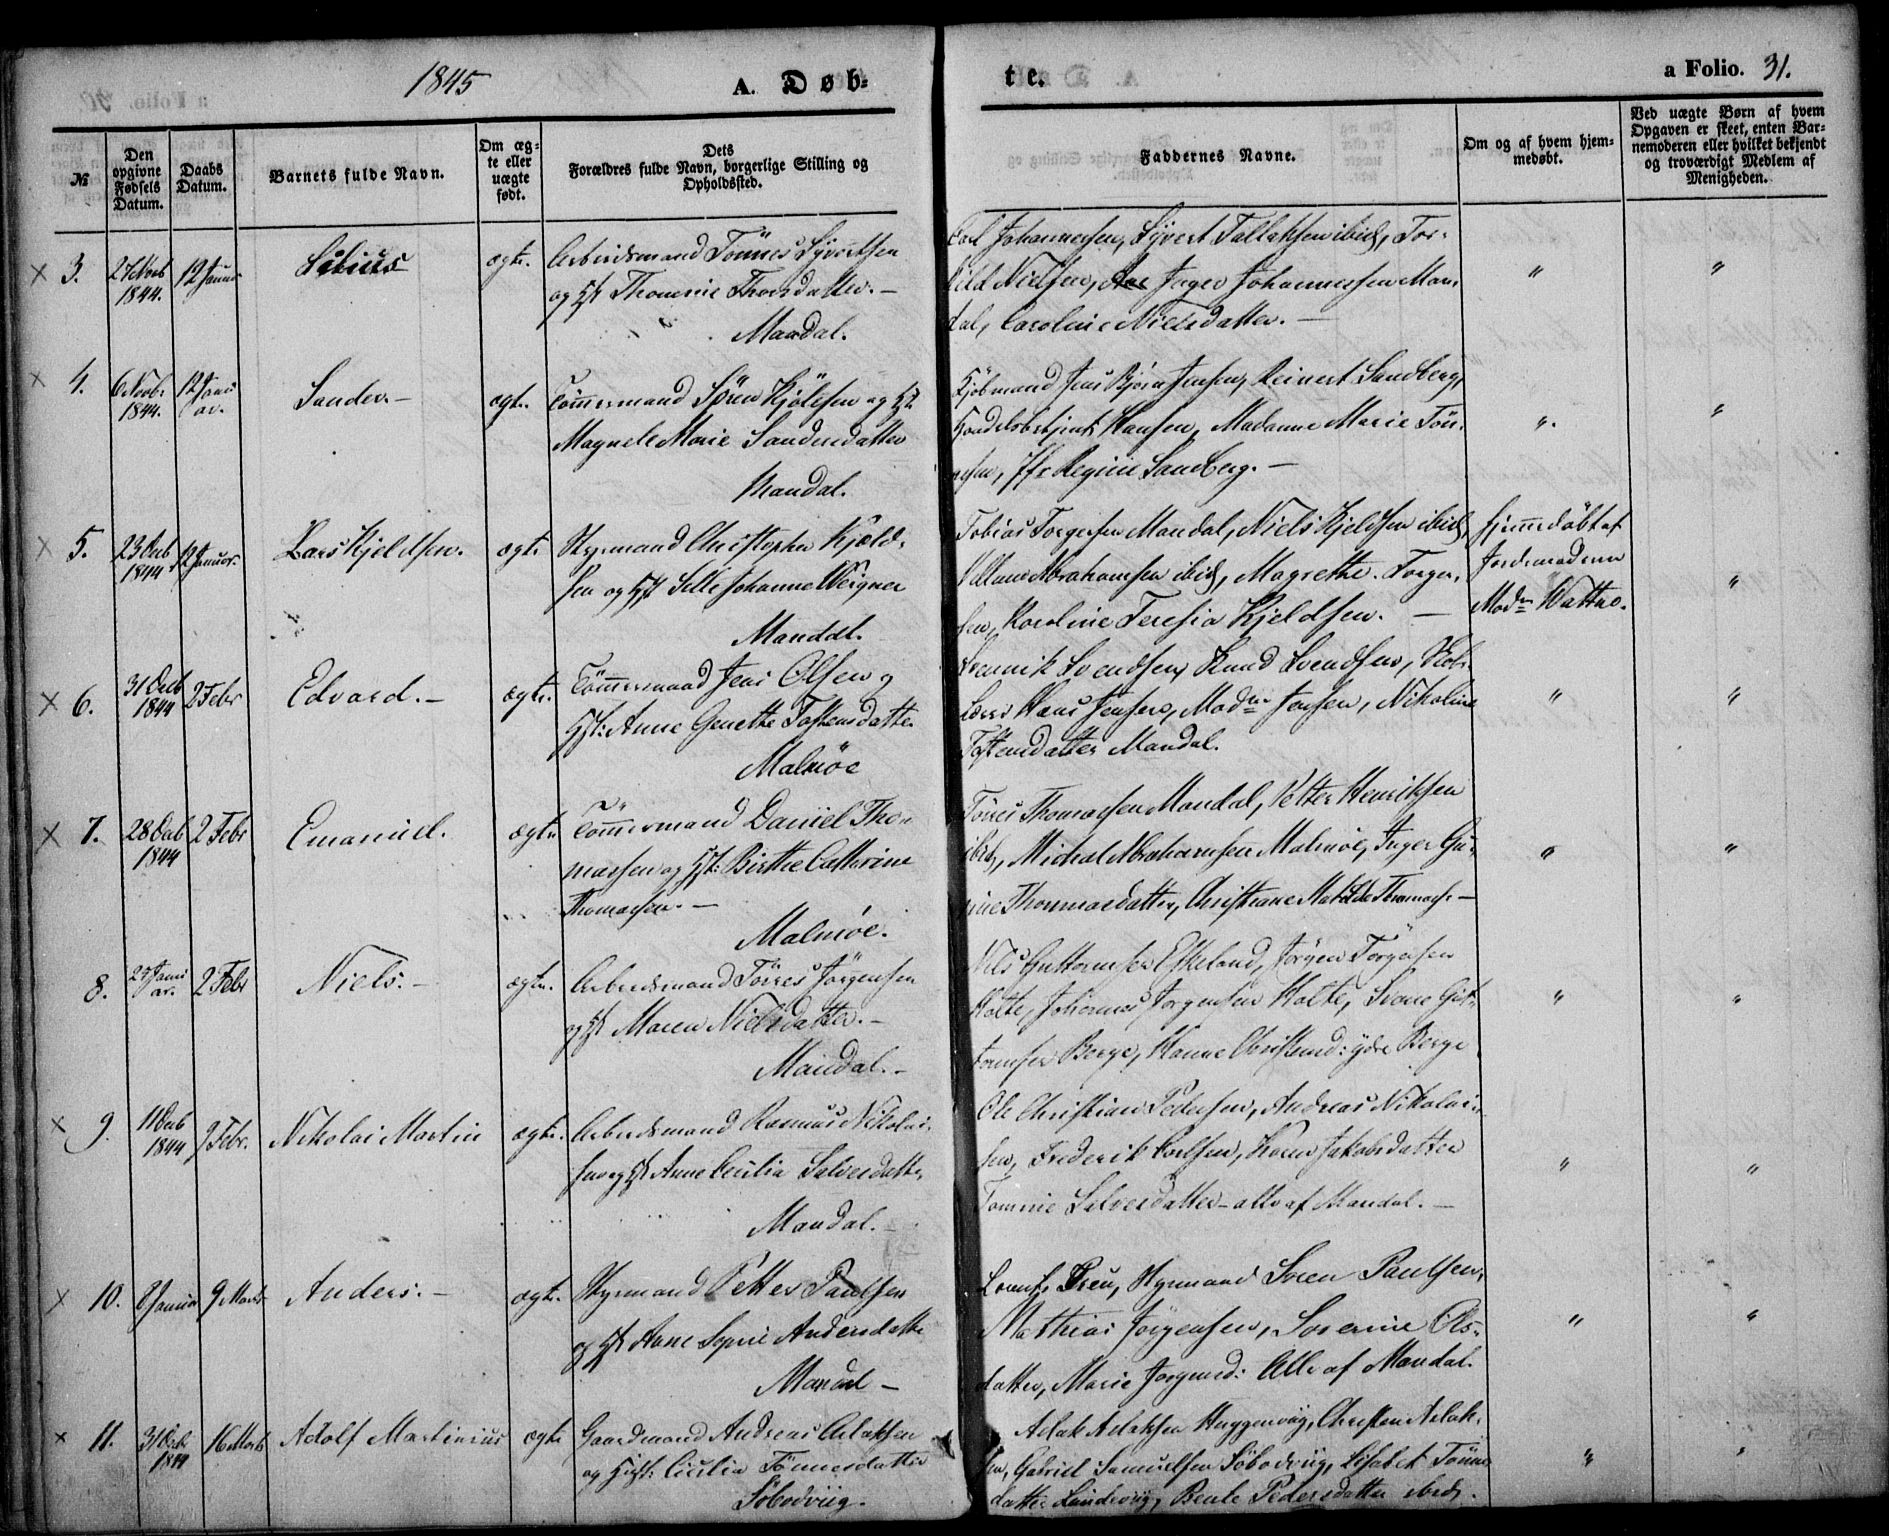 1845
A. Døb=
te.
a Folio. 31.
№
Den opgivne Fødsels Datum.
Daabs Datum.
Barnets fulde Navn.
Om æg-te eller uægte født.
Dets Forældres fulde Navn, borgerlige Stilling og Opholdssted.
Faddernes Navne.
Om og af hvem hjem-medøbt.
Ved uægte Børn af hvem Opgaven er skeet, enten Bar-nemoderen eller hvilket bekjendt og troværdigt Medlem af Menigheden.
3. 27 Novb 1844. 12 Januar
ægte. Arbeidsmand Tönnes Syvertsen
og Hst Thomine Thorsdatter. —
Mandal.
Carl Johannessen, Syvert Tallaksen ibid, Tor-
kild Nielsen, Inger Johannessen Man-
dal, Caroline Nielsdatter. —
4. 6 Novbr 1844. 12 Janu ar. Sander. — ægte. Tömmermand Sören Kjölesen og Hst
Magnele Marie Sandersdatter
Mandal.
Kjöbmand Jens Björn Jensen, Reinert Sandberg,
Handelsbetjent Hansen, Madame Marie Tön-
nesen, Jfr Regine Sandberg. —
5. 23 Decb 1844 12 Januar. Lars Kjeldsen. ægte Styrmand Christopher Kjeld-
sen og Hst Sille Johanne Weigner
Mandal.
Tobias Torgersen Mandal, Niels Kjeldsen ibid,
Abrahamsen ibid, Magrethe Torger-
sen, Karoline Teresia Kjeldsen. —
Hjemmedöbt af
Jordemoderen
Mad. Wattne.
6. 31 Decb 1844 2 Febr Edvard. — ægte. Tömmermand Jens Olsen og
Hst: Anne Genette Tostensdatter
Malmöe
Svendsen, Knud Svendsen,
Hans Jensen, Madme Jensen, Nikoline
Tostensdatter Mandal.
7. 28 Decb 1844 2 Febr Emanuel. ægte Tömmermand Daniel Tho-
massen og Hst: Birthe Cathrine
Thomassen. —
Malmöe.
Törres Thomassen Mandal, Petter Henriksen
ibid, Michal Abrahamsen Malmöe, Inger Gu-
rine Thommasdatter, Christiane Mathilde Thomass. —
8. 27 Janu ar. 2 Febr Niels. — ægte. Arbeidsmand Törres Jörgensen
og Hst Maren Nielsdatter. —
Mandal. —
Nils Guttormsen Eskeland, Jörgen Törgersen
Holte, Johannes Jorgensen Holte, Svane Gut-
tormsen Berge, Hanne Christensd: ydre Berge
9. 11 Decb 1844 9 Febr. Nikolai Martin ægte. Arbeidsmand Rasmus Nikolai-
sen og Hst Anne Cecilia Salvesdatter
Mandal. —
Ole Christian Pedersen, Andreas Nikolai-
sen, Frederik Carlsen, Karen Jakobsdatter
Tomine Salvesdatter — alle af Mandal. —
10. 8 Januar 9 Marts Anders. — ægte. Styrmand Petter Paulsen
og Hst Anne Sopie Andersdatter
Mandal —
Styrmand Sören Paulsen,
Mathias Jörgensen, Soverine Ols-
datter, Marie Jorgensd: Alle af Mandal.
11. 31 Decb 1844 16 Marts Adolf Martinius ægte Gaardmand Andreas Aslaksen
og Hust: Cicilia Tönnesdatter
Söbodviig.
Aslak Aslaksen Skeggenviig, Christen Aslak-
sen, Gabriel Samuelsen Söbodviig, Lisabet Tönnes
datter Landeviig, Bente Pedersdatter ibid.